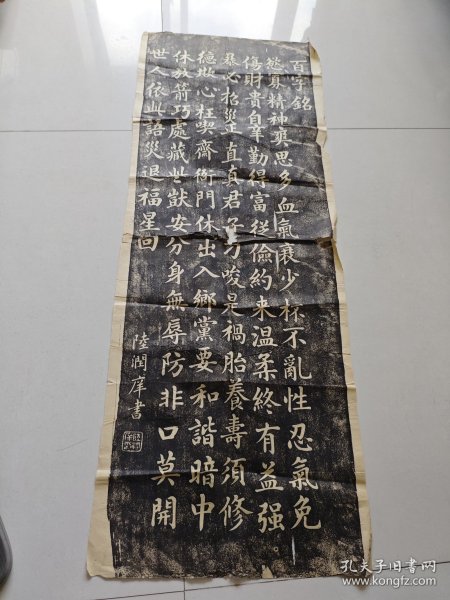 百字銘
慾寡精神爽思多血氣衰少杯不亂性忍氣免
傷財貴自辛勤得富從儉約来温柔終有益强
暴必招災正直真君子刁唆是禍胎養壽須修
德欺心枉喫齊衙門休出入鄉黨要和諧暗中
休放箭巧處藏些獃安分身無辱防非口莫開
世人依此語災退福星回
陸潤庠書
孔夫子旧书网
www.kongfz.com